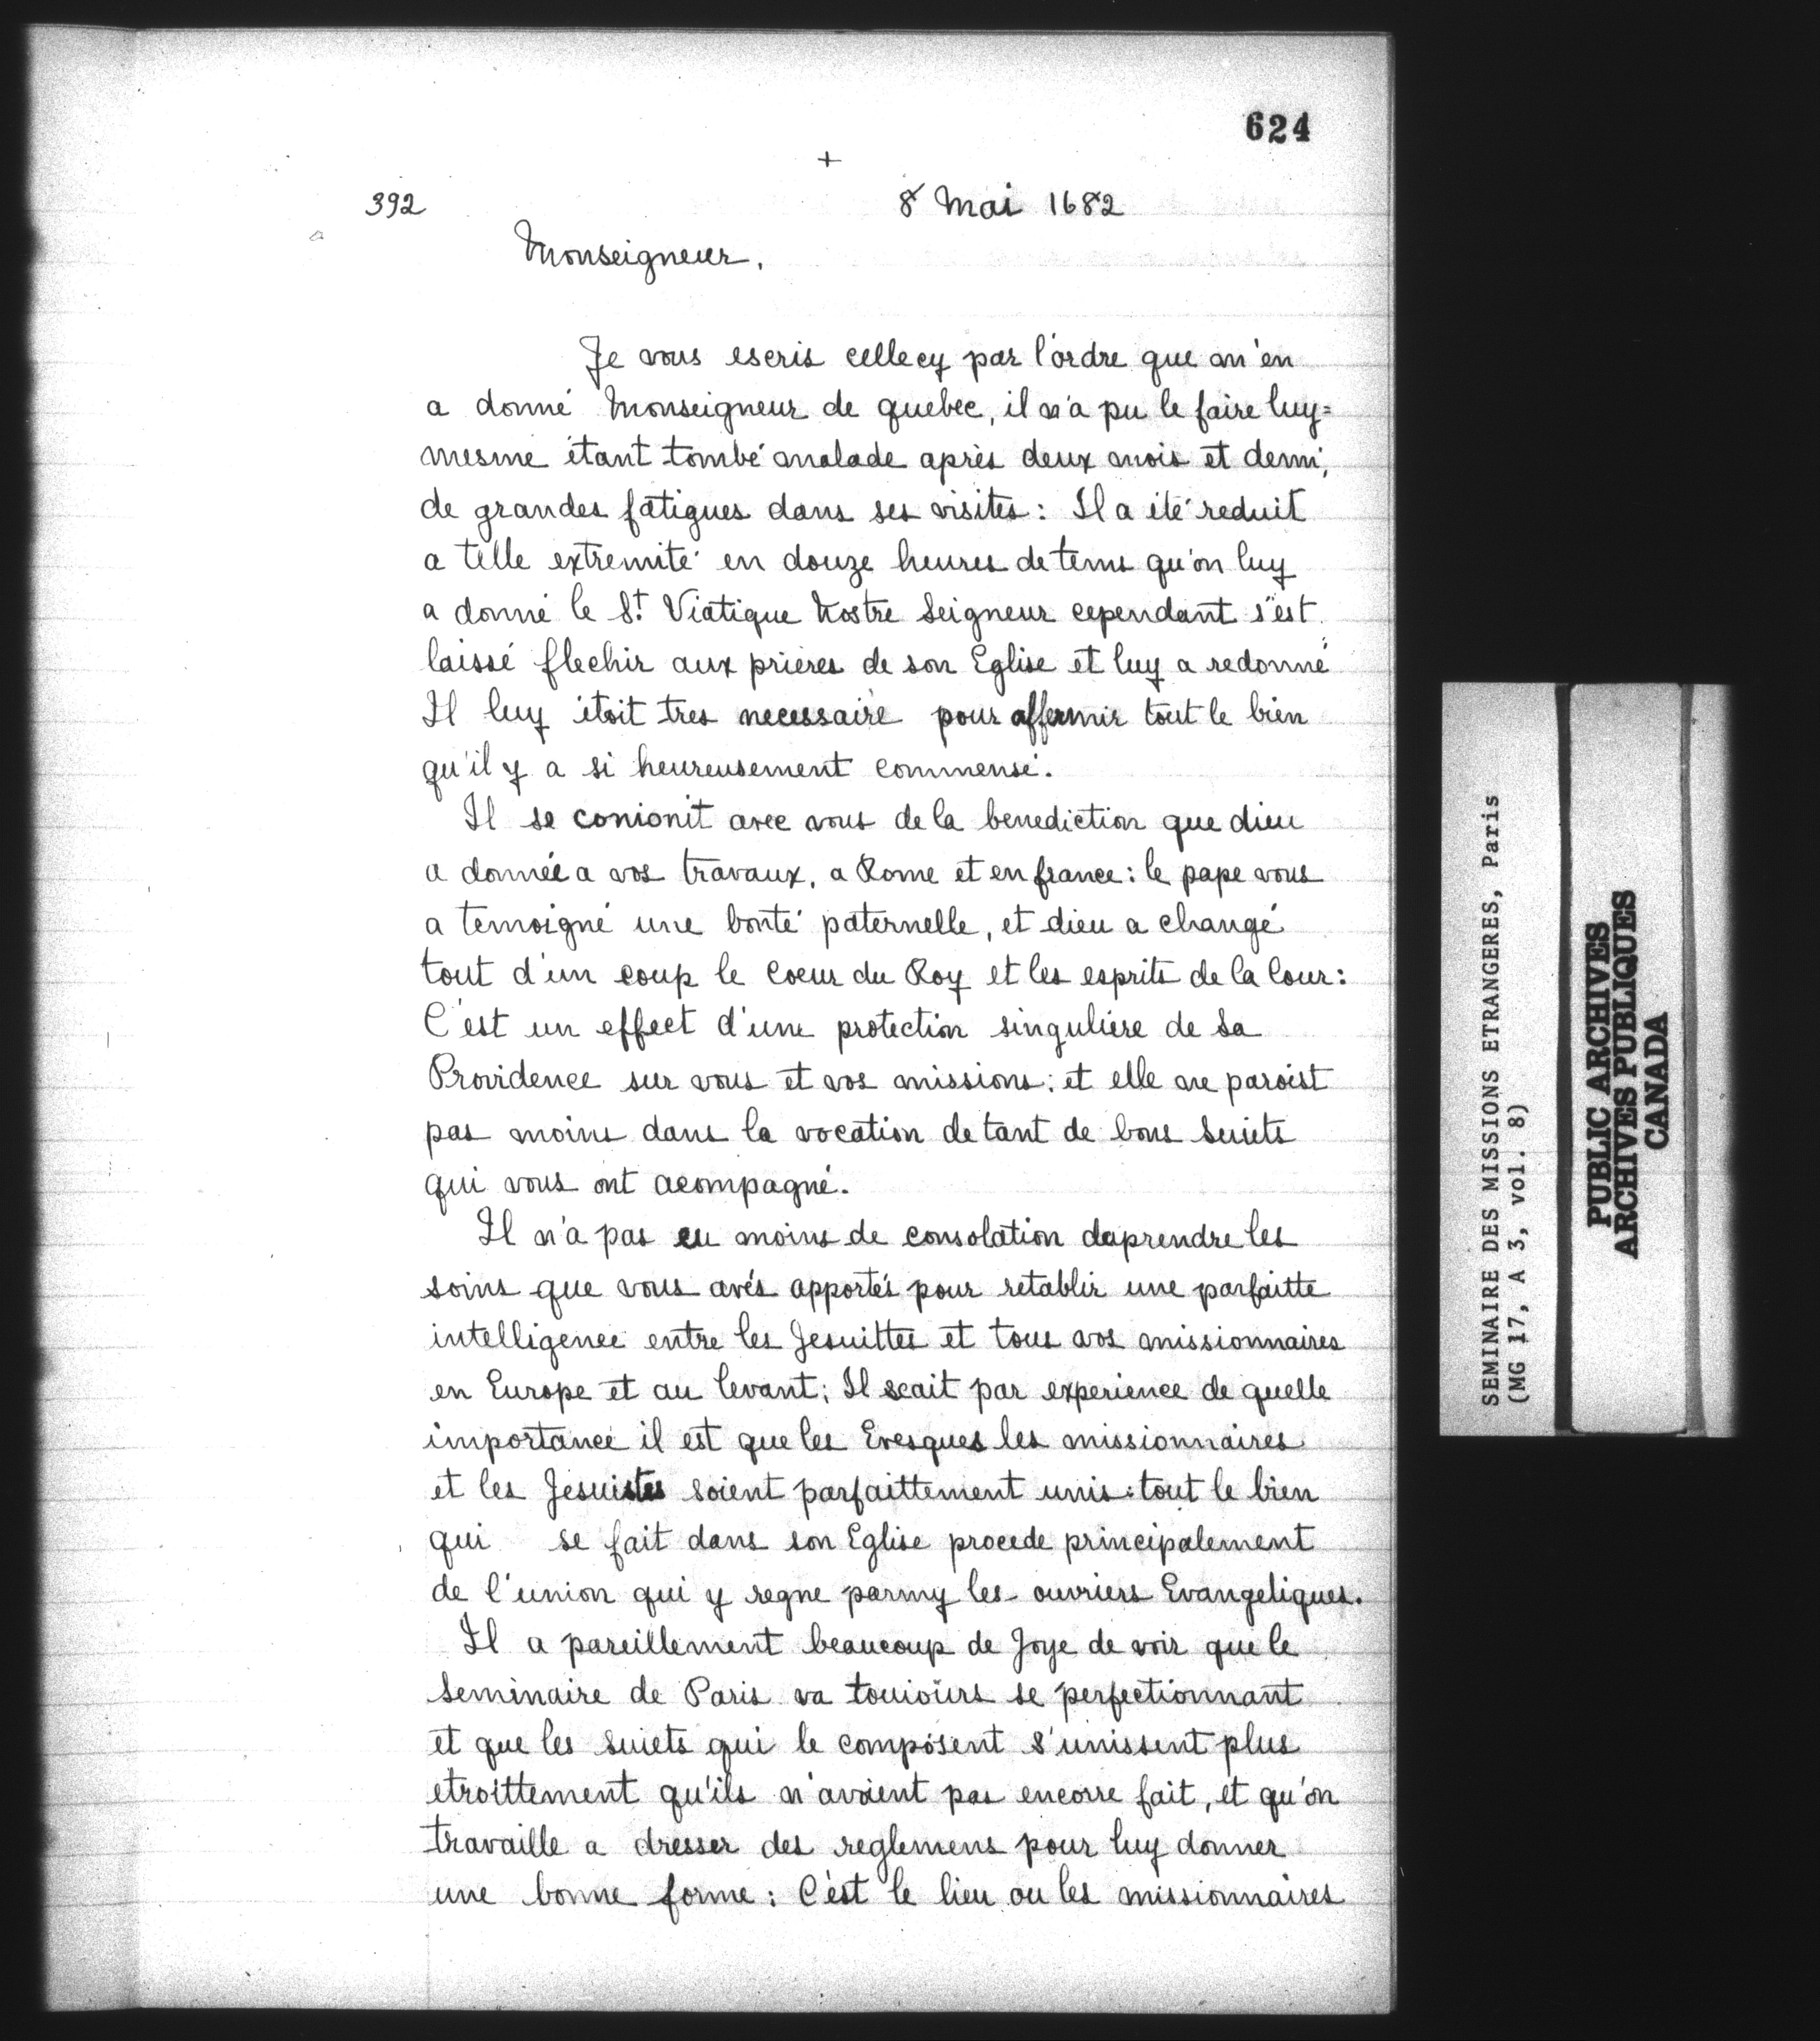 624
+
392
8 Mai 1682
Monseigneur,
Je vous escris cellecy par l'ordre que m'en
a donné Monseigneur de quebec, il n'a pu le faire luy=
mesme étant tombé malade après deux mois et demi,
de grandes fatigues dans ses visites : Il a été reduit
a telle extremité en douze heures de tems qu'on luy
a donné le St. Viatique Nostre Seigneur cependant s'est
laissé flechir aux prieres de son Eglise et luy a redonné
Il luy étoit tres necessaire pour affermir tout le bien
qu'il y a si heureusement commensé.
Il se conionit avec vous de la benediction que dieu
a donnée a vos travaux, a Rome et en france : le pape vous
a temoigné une bonté paternelle, et dieu a changé
tout d'un coup le Coeur du Roy et les esprits de la Cour :
C'est un effect d'une protection singulière de Sa
Providence sur vous et vos missions ; et elle ne paroist
pas moins dans la vocation de tant de bons Suiets
qui vous ont acompagné.
Il n'a pas eu moins de consolation daprendre les
soins que vous avés apportés pour retablir une parfaitte
intelligence entre les Jesuittes et tous vos missionnaires
en Europe et au levant ; Il scait par experience de quelle
importance il est que les Evesques les missionnaires
et les Jesuistes soient parfaittement unis : tout le bien
qui se fait dans son Eglise procede principalement
de l'union qui y regne parmy les ouvriers Evangeliques.
Il a pareillement beaucoup de Joye de voir que le
Seminaire de Paris va touiours se perfectionnant
et que les suiets qui le composent s'unissent plus
etroittement qu'ils n'avoient pas encorre fait, et qu'on
travaille a dresser des reglemens pour luy donner
une bonne forme : C'est le lieu ou les missionnaires
SEMINAIRE DES MISSIONS ETRANGERES, Paris
(MG 17, A 3, vol. 8)
PUBLIC ARCHIVES
ARCHIVES PUBLIQUES
CANADA